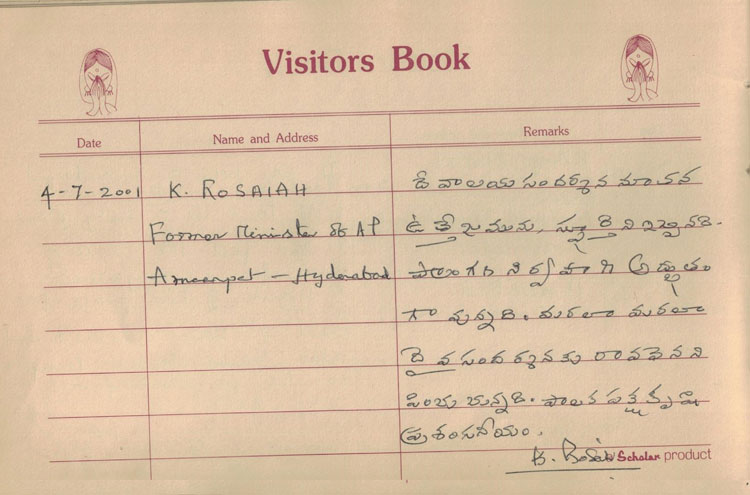 Visitors Book
Date Name and Address Remarks
4-7-2001 K. ROSAIAH దేవాలయ సందర్శన మాచన
Former Minister of AP ఉత్తేజమును, స్ఫూర్తిని ఇచ్చినది.
Ameerpet - Hyderabad అద్భుతం
గా వున్నది. మరలా మరలా
దైవ సందర్శనకు రావలెనని
పించు చున్నది. పాలక
ప్రశంసనీయం.
K. Rosaiah Scholar product